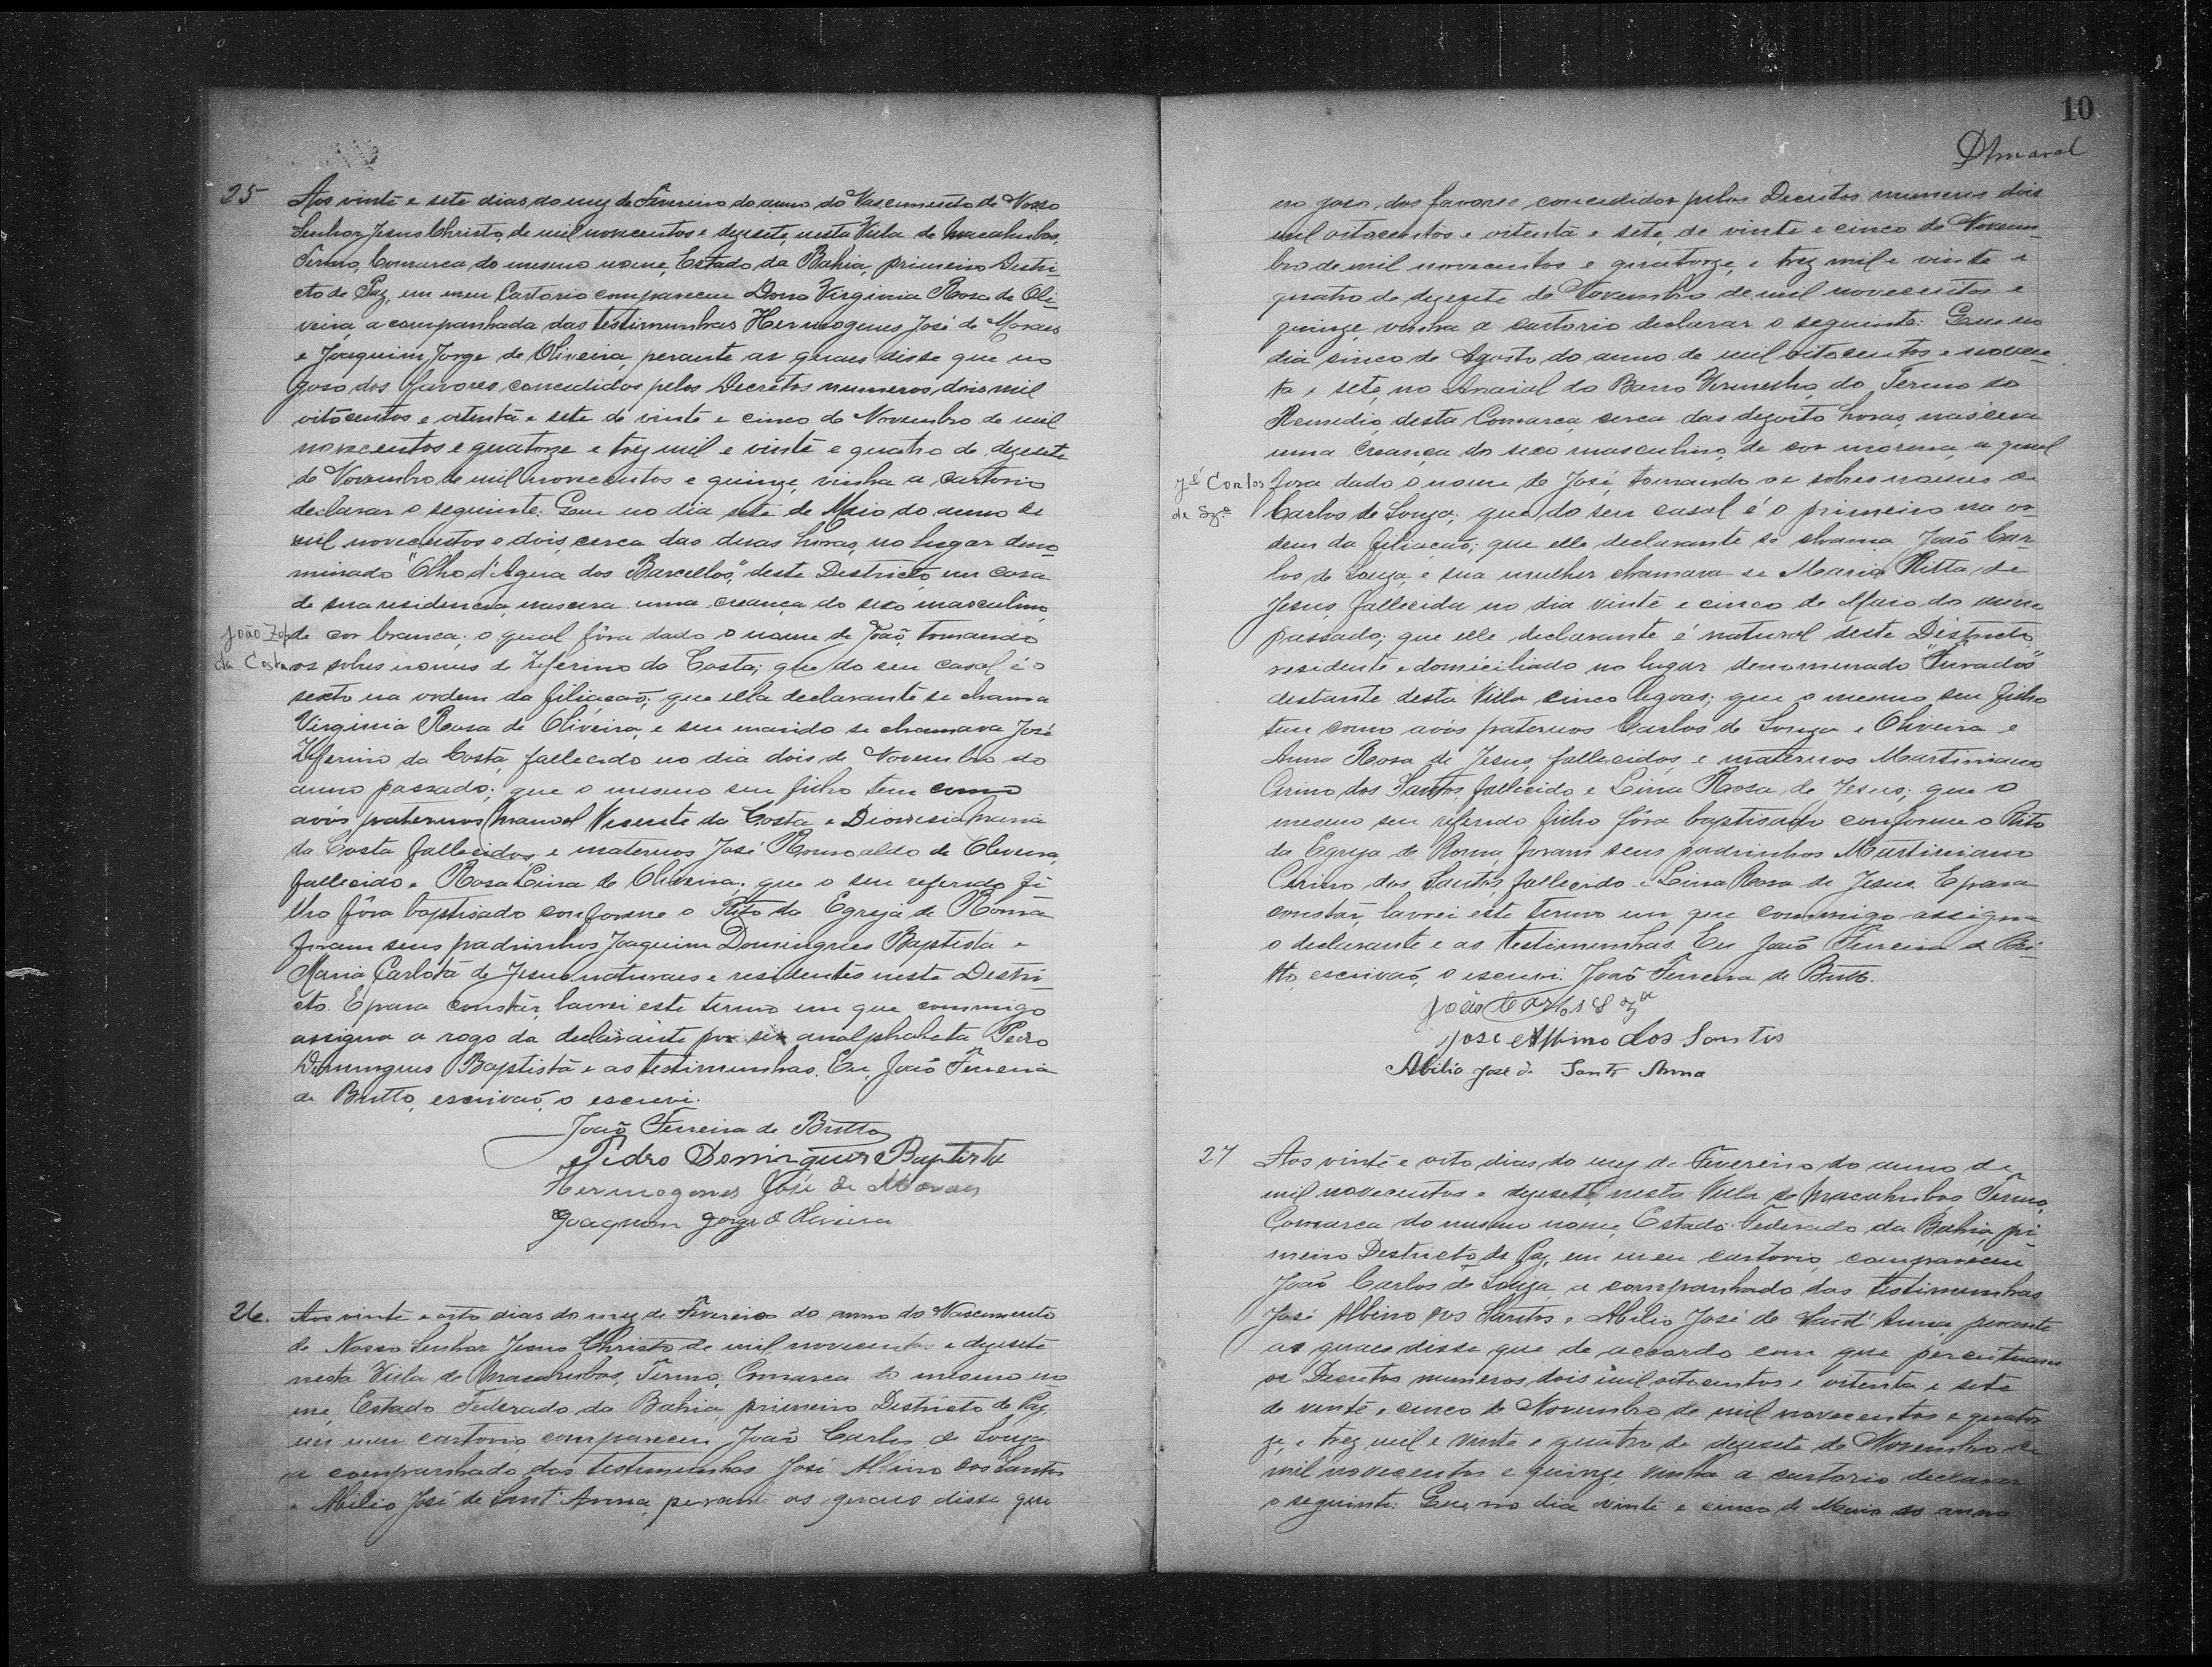 10
DAmaral
25 Aos vinte e sete dias do mez de Fevereiro do anno do Nascimento de Nosso
Senhor Jesus Christo, de mil novecentos e dezesete, nesta Villa de Macahubas,
Termo, Comarca do mesmo nome, Estado da Bahia, primeiro Distri-
cto de Paz, em meu Cartorio compareceu Dona Virginia Rosa de Oli-
veira, acompanhada das testimunhas Hermogenes José de Moraes
e Joaquim Jorge de Oliveira, perante as quaes disse que no
goso dos favores concedidos pelos Decretos numeros dois mil
oitocentos e oitenta e sete de vinte e cinco de Novembro de mil
novecentos e quatorze e trez mil e vinte e quatro de dezesete
de Novembro de mil novecentos e quinze, vinha a cartorio
declarar o seguinte: Que no dia sete de Maio do anno de
mil novecentos e dois, cerca das duas horas, no lugar deno-
minado "Olho d'Agua dos Barcellos," deste Districto, em casa
de sua residencia, nascera uma creança do sexo masculino,
João Zef. de cor branca; o qual fôra dado o nome de João, tomando
da Costa os sobres nomes de Zeferino da Costa; que do seu casal é o
sexto na ordem da filiação; que ella declarante se chama
Virginia Rosa de Oliveira, e seu marido se chamava José
Zeferino da Costa, fallecido no dia dois de Novembro do
anno passado; que o mesmo seu filho tem como
avós paternos Manoel Vicente da Costa e Dionisia Maria
da Costa fallecidos, e maternos José Romoaldo de Oliveira,
fallecido e Rosa Lina de Oliveira; que o seu referido fi-
lho fôra baptisado conforme o Rito da Egreja de Roma
foram seus padrinhos Joaquim Domingues Baptista e
Maria Carlota de Jesus naturaes e residentes neste Distri-
cto. E para constar, lavrei este termo em que commigo
assigna a rogo da declarante por ser analphabeta Pedro
Domingues Baptista e as testimunhas. Eu, João Ferreira
de Britto, escrivão, o escrevi.
João Ferreira de Britto
Pedro Domingues Baptista
Hermogenes José de Moraes
Joaquim Jorge d Oliveira
26. Aos vinte e oito dias do mez de Fevereiro do anno do Nascimento
de Nosso Senhor Jesus Christo de mil novecentos e dezesete
nesta Villa de Macahubas, Termo, Comarca do mesmo no-
me, Estado Federado da Bahia, primeiro Districto de Paz,
em meu cartorio, compareceu João Carlos de Souza
a companhado das testimunhas José Albino dos Santos
e Abilio José de Sant'Anna, perante as quaes disse que
no goso dos favores concedidos pelos Decretos numeros dois
mil oitocentos e oitenta e sete, de vinte e cinco de Novem-
bro de mil novecentos e quatorze, e trez mil e vinte e
quatro de dezesete de Novembro de mil novecentos e
quinze, vinha a cartorio declarar o seguinte: Que no
dia cinco de Agosto do anno de mil oitocentos e noven-
ta e sete, no Arraial do Barro Vermelho, do Termo do
Remedio, desta Comarca, cerca das dezoito horas, nascera
uma creança do sexo masculino, de cor morena, a qual
Jé Carlos fora dado o nome de José, tomando os sobres nomes de
de Sza Carlos de Souza; que do seu casal é o primeiro na or-
dem da filiação; que elle declarante se chama João Car-
los de Souza, e sua mulher chamava-se Maria Ritta de
Jesus, fallecida no dia vinte e cinco de Maio do anno
passado; que elle declarante é natural deste Districto
residente e domiciliado no lugar denominado "Furados"
distante desta Villa cinco legoas; que o mesmo seu filho
tem como avós paternos Carlos de Souza e Oliveira e
Anna Rosa de Jesus, fallecidos, e maternos Martiniano
Cirino dos Santos, fallecido e Lina Rosa de Jesus; que o
mesmo seu referido filho fôra baptisado conforme o Rito
da Egreja de Roma, foram seus padrinhos Martiniano
Cirino dos Santos, fallecido e Lina Rosa de Jesus. E para
constar, lavrei este termo em que commigo assigna
o declarante e as testimunhas. Eu João Ferreira de Bri-
tto, escrivão, o escrevi. João Ferreira de Britto.
João Carlos Sza
José Albino dos Santos
Abilio José de Santo Anna
27 Aos vinte e oito dias do mez de Fevereiro do anno de
mil novecentos e dezesete, nesta Villa de Macahubas, Termo,
Comarca do mesmo nome, Estado Federado da Bahia, pri-
meiro Districto de Paz, em meu cartorio, compareceu
João Carlos de Souza, a companhado das testimunhas
José Albino dos Santos e Abilio José de Sant'Anna, perante
as quaes disse que de accordo com que
os Decretos numeros dois mil oitocentos e oitenta e sete
de vinte e cinco de Novembro de mil novecentos e quator-
ze, e trez mil e vinte e quatro de dezesete de Novembro de
mil novecentos e quinze, vinha a cartorio declarar
o seguinte: Que no dia vinte e cinco de Maio do anno